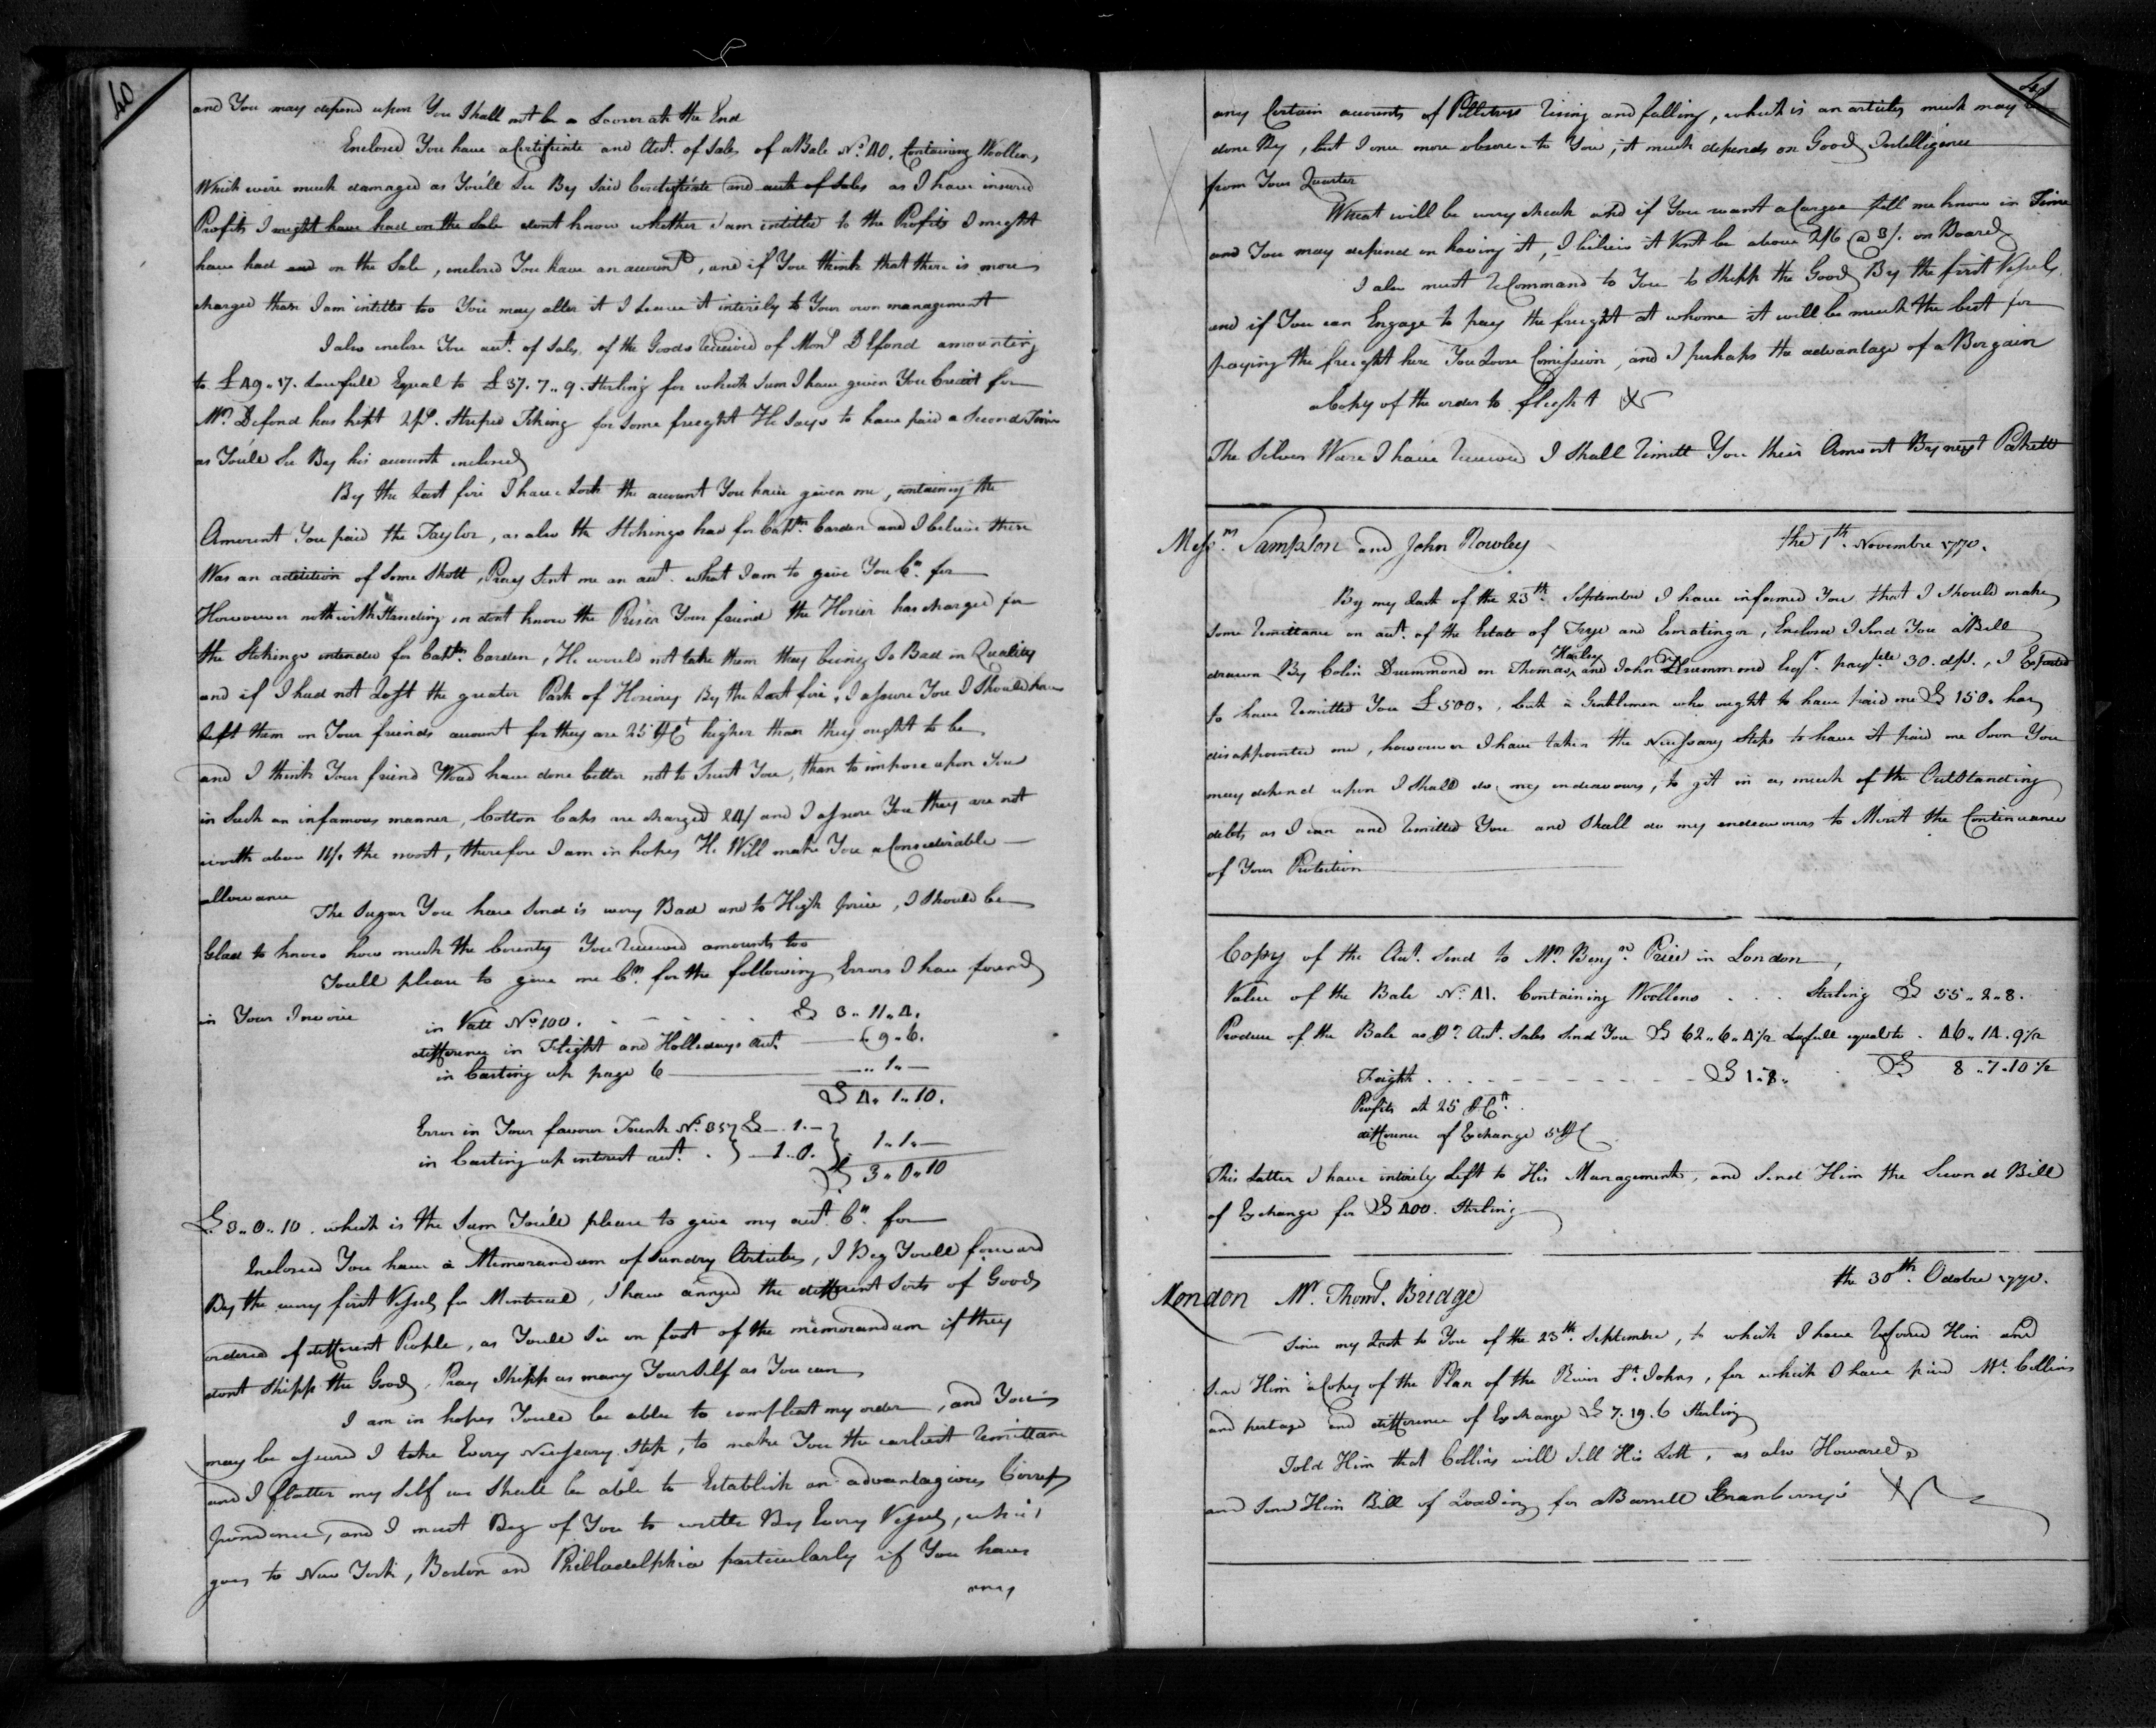 40
and You may depend upon You Shall not be a Looser at the End
Enclosed You have a Certificate and Acct. of Sales of a Bale No. 40. Containing Woollen,
Which were much damaged as You'll See By Said Certificate and acct of Sales as I have insured
Profits I might have had on the Sale dont know whether I am intitled to the Profits I might
have had and on the Sale, enclosed You have an account, and if You think that there is more
charged than I am intitled too You may alter it I Leave it intirely to Your own management
I also enclose You acct. of Sales of the Goods Received of Monsr Defond amounting
to £49.. 17. Lawfull Equal to £37. 7.. 9. Sterling for which Sum I have given You Credit for
Mr. Defond has kept 2 ps. Striped Tiking for some freight He Says to have paid a Second Time
as You'll See By his account inclosed
By the Last fire I have Lost the account You have given me, containing the
Amount You paid the Taylor, as also the Stokings had for Captn. Carden and I believe there
Was an addition of Some Shott, Pray Sent me an acct. what I am to give You Cr. for
However nothwithstanding in dont know the Prices Your friend the Hosier has charged for
the Stokings intended for Captn. Carden, He would not take them they being So Bad in Quality
and if I had not Lost the greater Part of Hosiery By the Last fire, I assure You I Should have
left them on Your friends account for they are 25 P Ct higher than they ought to be
and I think Your friend Woud have done better not to Trust You, than to impose upon You
in Such an infamous manner, Cotton Caps are charged 24/ and I assure You they are not
worth above 14/. the most, therefore I am in hopes He Will make You a Considerable
allowance
The Sugar You have Send is very Bad and to High price, I Should be
Glad to know how much the Bounty You Received amounts too
Youll please to give me Cr. for the following Errors I have found
in Your Invoice
in Vatt No 100. £ 3.. 11.. 4.
difference in Flight and Hollidays acct. 9.. 6.
in Casting up page 6 .. 1.. —
£ 4. 1.. 10.
Error in Your favour Trunk No. 357 £ —. 1. —
in Casting up interest acct. 1.. 0. 1.. 1.. —
£ 3.. 0.. 10
£ 3.. 0.. 10. which is the Sum You'll please to give my acct. Cr. for
Enclosed You have a Memorandum of Sundry Articles, I Beg Youll forward
By the very first Vessels for Montreal, I have the different Sorts of Goods
ordered of different People, as Youll See on foot of the memorandum if they
dont Shipp the Goods, Pray Shipp as many YourSelf as You can
I am in hopes Youll be able to compleat my order, and You
may be assured I take Every Necessary Step, to make You the earliest Remittance
and I flatter my Self we Shall be able to Establish an advantagious Corres
pondence, and I must Beg of You to write By Every Vessel, which
goes to New York, Boston and Philladelphia particularly if You have
any
41
any Certain accounts of Pelletrys Rising and falling, which is an articles much may be
done By, but I once more observe to You, it much depends on Good Intelligence
from Your Quarter
Wheat will be very cheap and if You want a Cargoe let me know in Time
and You may depend on having it, I believe it Wont be above 2/6 @ 3/. on Board
I also must Recommand to You to Shipp the Goods By the first Vessels,
and if You can Engage to pay the freight at whome it will be much the best for
paying the freight here You Loose Comission, and I perhaps the advantage of a Bargain
a Copy of the order to flight
The Silver Ware I have Received I Shall Remitt You their Amount By next Pakett
Messrs. Sampson and John Rowley the 1th. Novembre 1770.
By my Last of the 23th. Septembre I have informed You that I Should make
Some Remittance on acct. of the Estate of Frye and Ermatinger, Enclosed I Send You a Bill
drawn By Colin Drummond on Thomas Harley and John Drummond Esqr. payble 30. d/st., I Expected
to have Remitted You £ 500., but a Gentlemen who ought to have paid me £ 150. has
disappointed me, however I have taken the Necessary Steps to have it paid me Soon You
may depend upon I Shall do my endeavours, to git in as much of the Outstanding
debts as I can and Remitted You and Shall do my endeavours to Merit the Continuance
of Your Protection
Copy of the Acct. Send to Mr. Benjn. Price in London,
Value of the Bale No. 41. Containing Woollens . . . Sterling £ 55.. 2.. 8.
Produce of the Bale as Pr. Acct. Sales Send You £ 62.. 6.. 4 1/2 Lafull equal to . 46.. 14. 9 1/2
£ 8.. 7.. 10 1/2
Freight . . . £ 1.. 8..
Profits at 25 P Ct.
difference of Exchange 5 P C
This Latter I have intirely Left to His Management, and Send Him the Second Bill
of Exchange for £ 400. Sterling
the 30th. Octobre 1770.
London Mr. Thoms. Bridge
Since my Last to You of the 23th. Septembre, to which I have Refered Him and
Send Him a Copy of the Plan of the River St. Johns, for which I have paid Mr. Collins
and portage and difference of Exchange £ 7. 19. 6 Sterling
Told Him that Collins will Sell His Lott, as also Howard,
and Send Him Bill of Loading for a Barrell Cranberrys